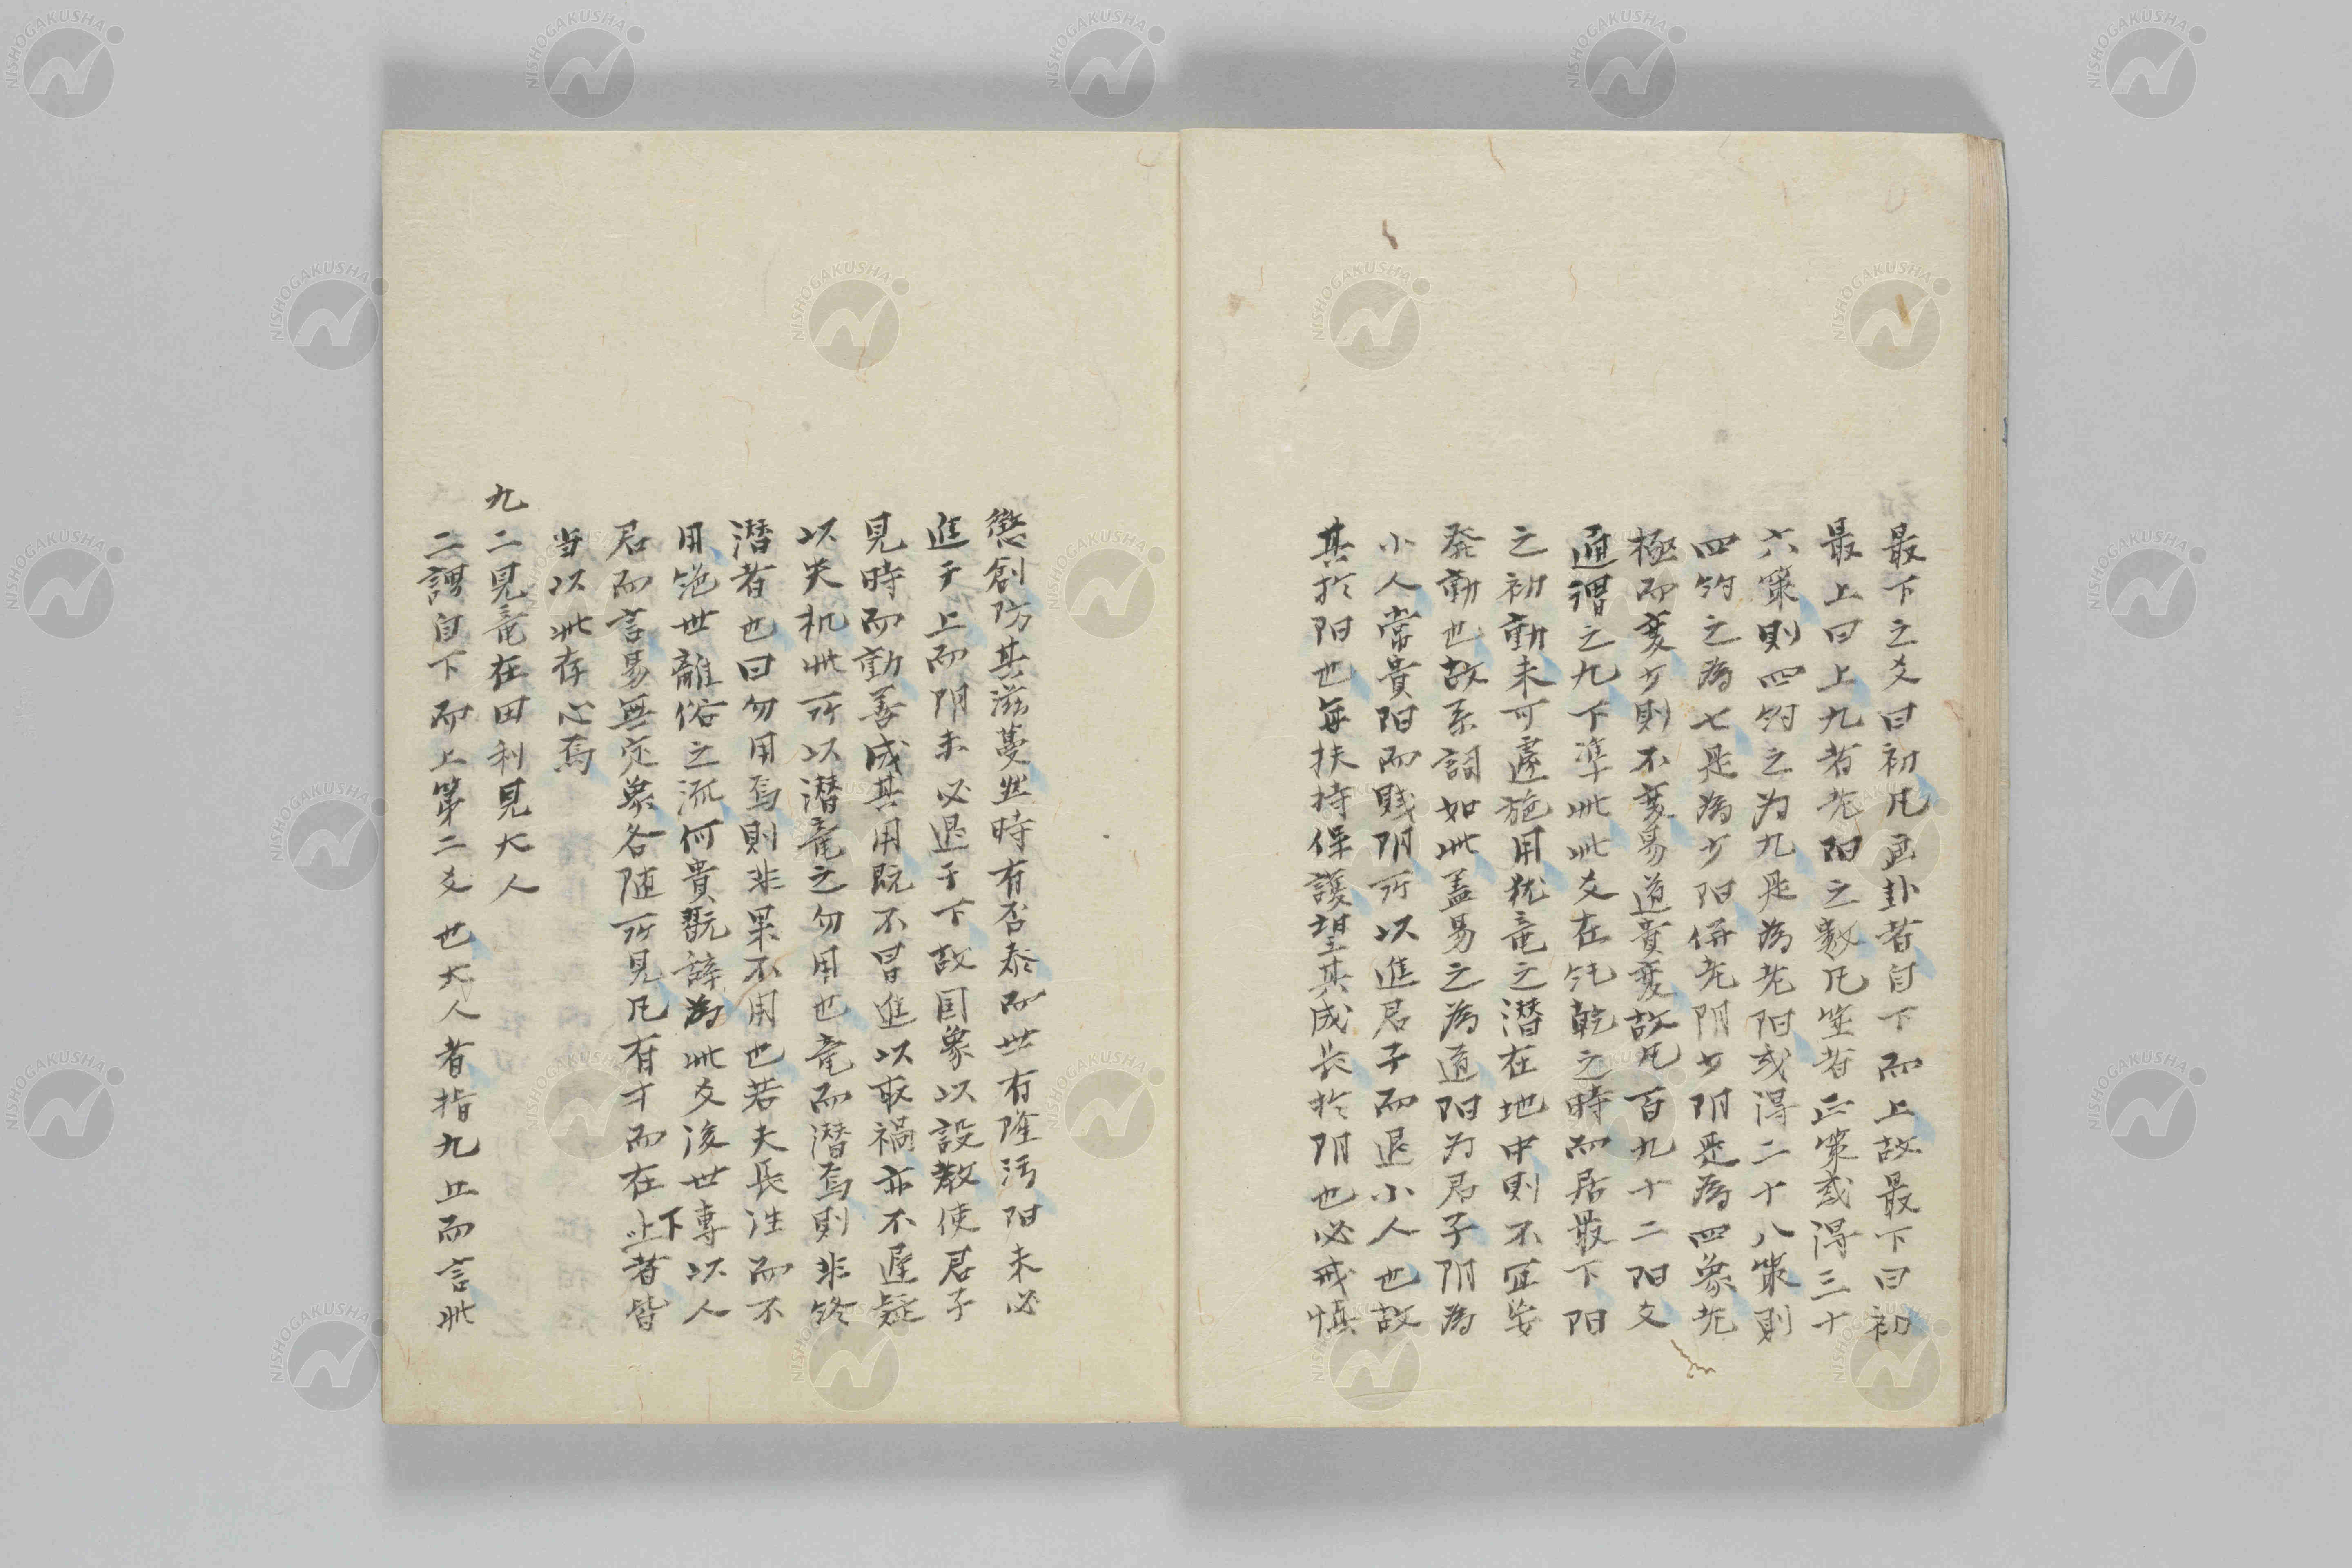 最下之爻曰初凡画卦者自下而上故最下曰初
最上曰上九者老阳之数凡筮者正策或得三十
六策則四約之为九是為老阳或得二十八策則
四約之為七是為少阳併老阴少阴是為四象老
極而変少則不変易道貴変故凡百九十二阳爻
通謂之九下準此此爻在純乾之時而居最下阳
之初動未可遽施用犹竜之潜在地中則不宜妄
発動也故系詞如此蓋易之為道阳为君子阴為
小人常貴阳而賎阴所以進君子而退小人也故
其於阳也每扶持保護望其成長於阴也必戒慎
懲創防其滋蔓然時有否泰而世有隆污阳未必
進于上而阴未必退于下故因象以設教使君子
見時而動善成其用既不冒進以取禍亦不遅疑
以失机此所以潜竜之勿用也竜而潜焉則非終
潜者也曰勿用焉則非果不用也若夫長往而不
用絶世離俗之流何貴翫辞為此爻後世専以人
君而言易無定象各随所見凡有才而在下者皆
当以此存心焉
九二見竜在田利見大人
二謂自下而上第二爻也大人者指九五而言此
NISHOGAKUSHA